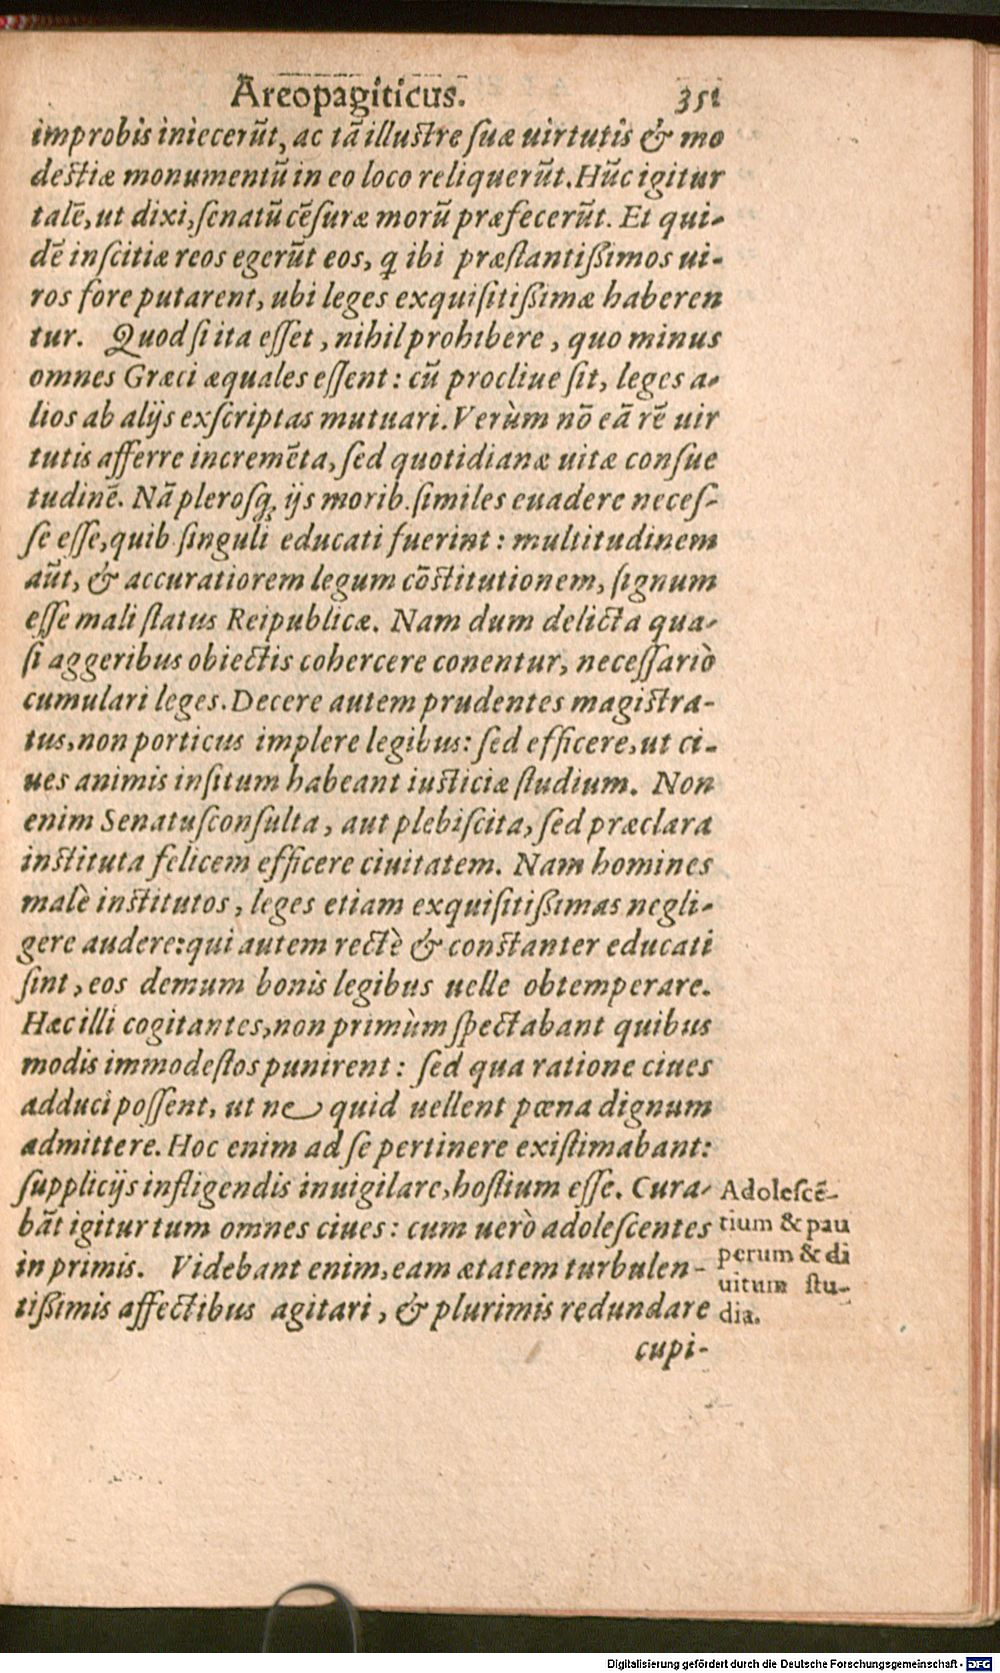 Areopagiticus. 351
improbis iniecerũt, ac tã illuſtre ſuæ uirtutis & mo
deſtiæ monumentũ in eo loco reliquerũt. Hũc igitur
talẽ, ut dixi, ſenatũ cẽſuræ morũ præfecerũt. Et qui-
dẽ inſcitiæ reos egerũt eos, q ibi præſtantißimos ui-
ros fore putarent, ubi leges exquiſitißimæ haberen
tur. Quod ſi ita eſſet, nihil prohibere, quo minus
omnes Græci æquales eſſent: cũ procliue ſit, leges a-
lios ab alijs exſcriptas mutuari. Verùm nõ eã rẽ uir
tutis afferre incremẽta, ſed quotidianæ uitæ conſue
tudinẽ. Nã pleroſq; ijs morib. ſimiles euadere neceſ-
ſe eſſe, quib. ſinguli educati fuerint: multitudinem
aũt, & accuratiorem legum cõſtitutionem, ſignum
eſſe mali ſtatus Reipublicæ. Nam dum delicta qua-
ſi aggeribus obiectis cohercere conentur, neceſſariò
cumulari leges. Decere autem prudentes magiſtra-
tus, non porticus implere legibus: ſed efficere, ut ci-
ues animis inſitum habeant iuſticiæ ſtudium. Non
enim Senatuſconſulta, aut plebiſcita, ſed præclara
inſtituta felicem efficere ciuitatem. Nam homines
malè inſtitutos, leges etiam exquiſitißimas negli-
gere audere: qui autem rectè & conſtanter educati
ſint, eos demum bonis legibus uelle obtemperare.
Hæc illi cogitantes, non primùm ſpectabant quibus
modis immodeſtos punirent: ſed qua ratione ciues
adduci poſſent, ut ne quid uellent pœna dignum
admittere. Hoc enim ad ſe pertinere exiſtimabant:
ſupplicijs infligendis inuigilare, hoſtium eſſe. Cura-
bãt igitur tum omnes ciues: cum uerò adoleſcentes
in primis. Videbant enim, eam ætatem turbulen-
tißimis affectibus agitari, & plurimis redundare
cupi-
Adoleſcẽ-
tium & pau
perum & di
uitum ſtu-
dia.
Digitalisierung gefördert durch die Deutsche Forschungsgemeinschaft - DFG